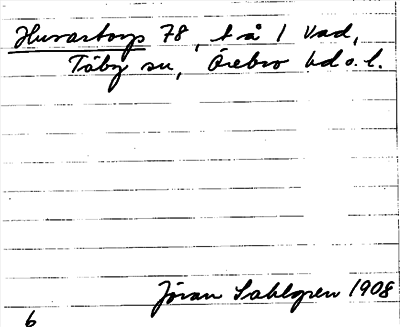 Husartorp 78, t å 1 Vad,
Täby sn, Örebro hd o. l.
Jöran Sahlgren 1908
6